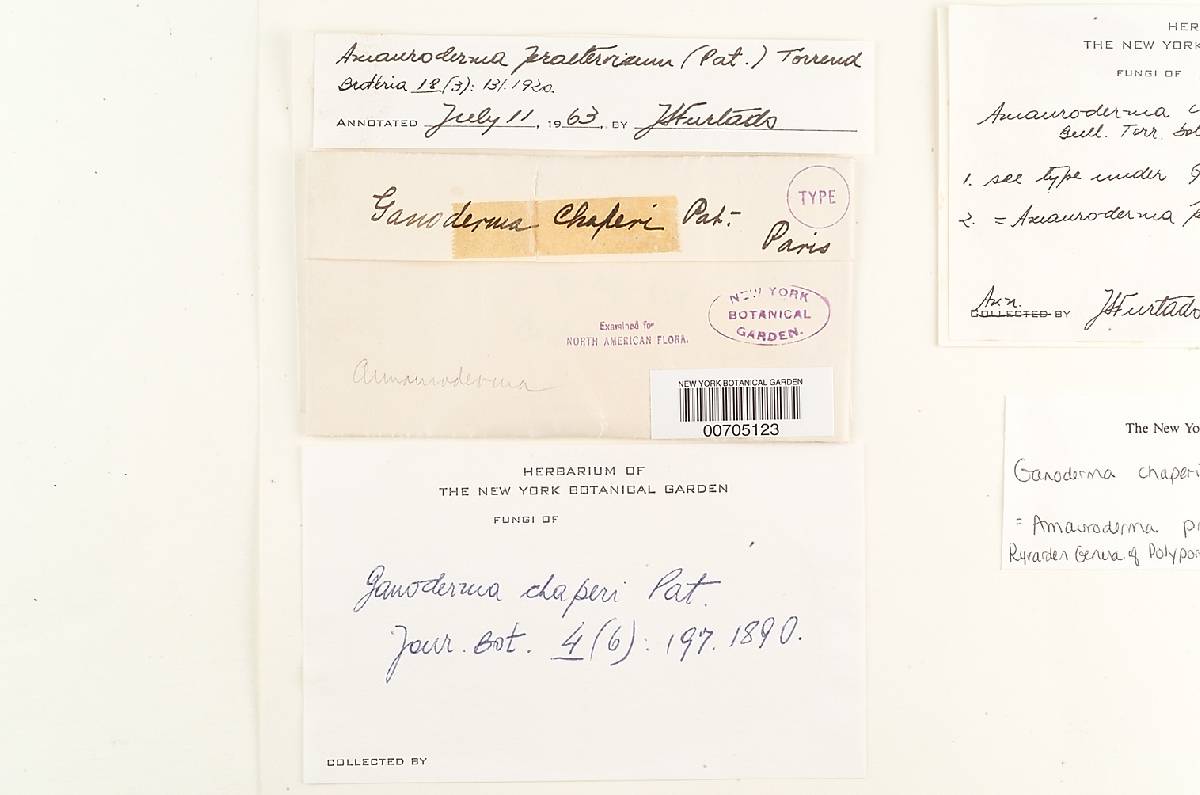 Amauroderma praetervisum (Pat.) Torrend
Brotéria 18(3): 131. 1920.
ANNOTATED July 11, 1963, BY JSFurtado
Ganoderma chaperi Pat.
TYPE
Paris
NEW YORK
BOTANICAL
GARDEN.
Examined for
NORTH AMERICAN FLORA.
Amauroderma
NEW YORK BOTANICAL GARDEN
00705123
HERBARIUM OF
THE NEW YORK BOTANICAL GARDEN
FUNGI OF
Ganoderma chaperi Pat.
Jour. Bot. 4(6): 197. 1890.
COLLECTED BY
HER
THE NEW YORK
FUNGI OF
Amauroderma
Bull. Torr. Bot
1. see type under G
2. = Amauroderma p
Ann.
COLLECTED BY JSFurtado
The New Yo
Ganoderma chaperi
= Amauroderma pr
Ryvarden Genera of Polypor